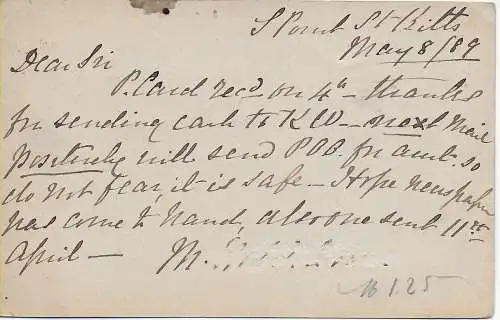 S Point St Kitts
May 8/89
Dear Sir
P. Card recd on 4th - thanks
for sending card to K W - next Mail
positively will send POO. for amt. so
do not fear, it is safe - Hope newspaper
has come to hand, also one sent 11th
April - M.
1.25